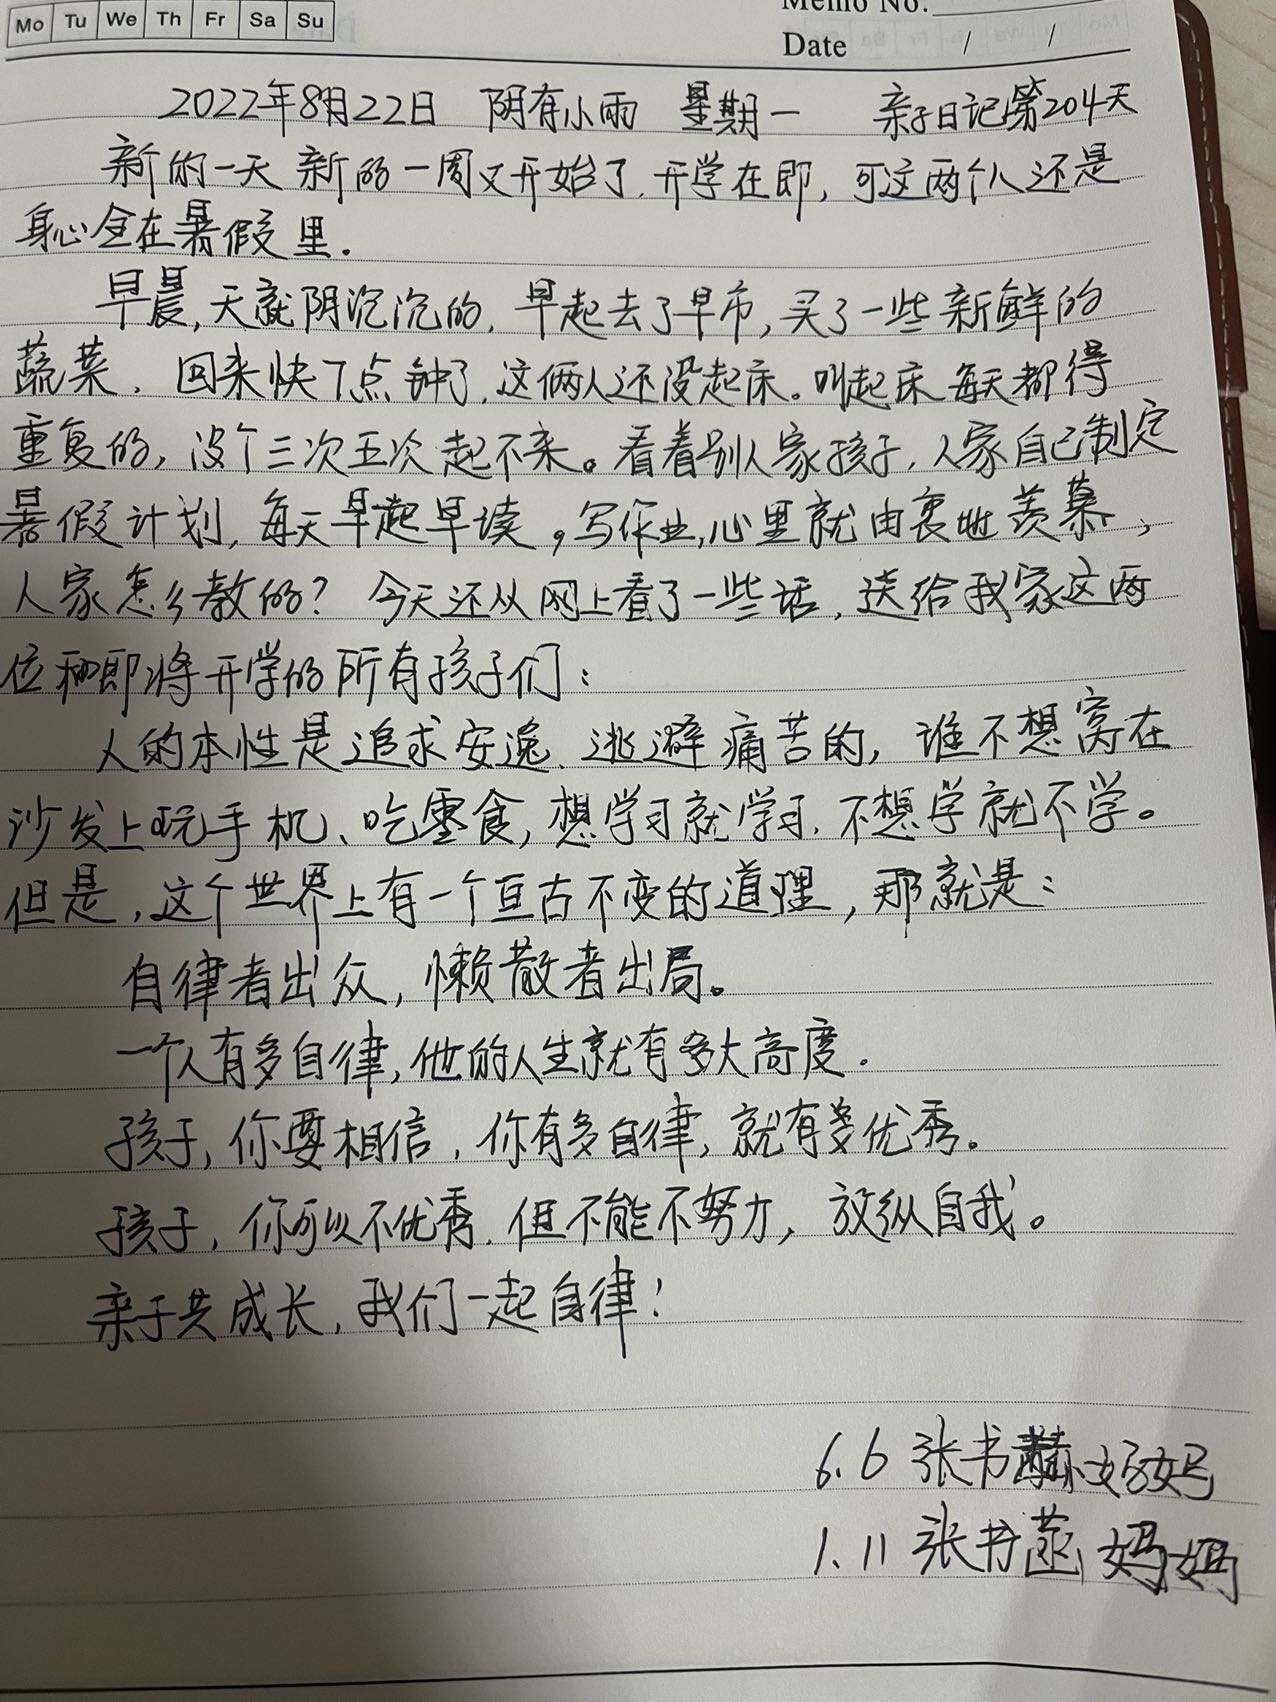 Mo Tu We Th Fr Sa Su
Memo No.
Date / /
2022年8月22日 阴有小雨 星期一 亲子日记第204天
新的一天新的一周又开始了,开学在即,可这两个人还是
身心全在暑假里.
早晨,天就阴沉沉的,早起去了早市,买了一些新鲜的
蔬菜,回来快7点钟了,这俩人还没起床。叫起床每天都得
重复的,没个三次五次起不来。看着别人家孩子,人家自己制定
暑假计划,每天早起早读,写作业,心里就由衷地羡慕,
人家怎么教的?今天还从网上看了一些话,送给我家这两
位和即将开学的所有孩子们:
人的本性是追求安逸、逃避痛苦的,谁不想窝在
沙发上玩手机、吃零食,想学习就学习,不想学就不学。
但是,这个世界上有一个亘古不变的道理,那就是:
自律者出众,懒散者出局。
一个人有多自律,他的人生就有多大高度.
孩子,你要相信,你有多自律,就有多优秀。
孩子,你可以不优秀,但不能不努力,放纵自我。
亲子共成长,我们一起自律!
6.6 张书赫妈妈
1.11 张书菡妈妈